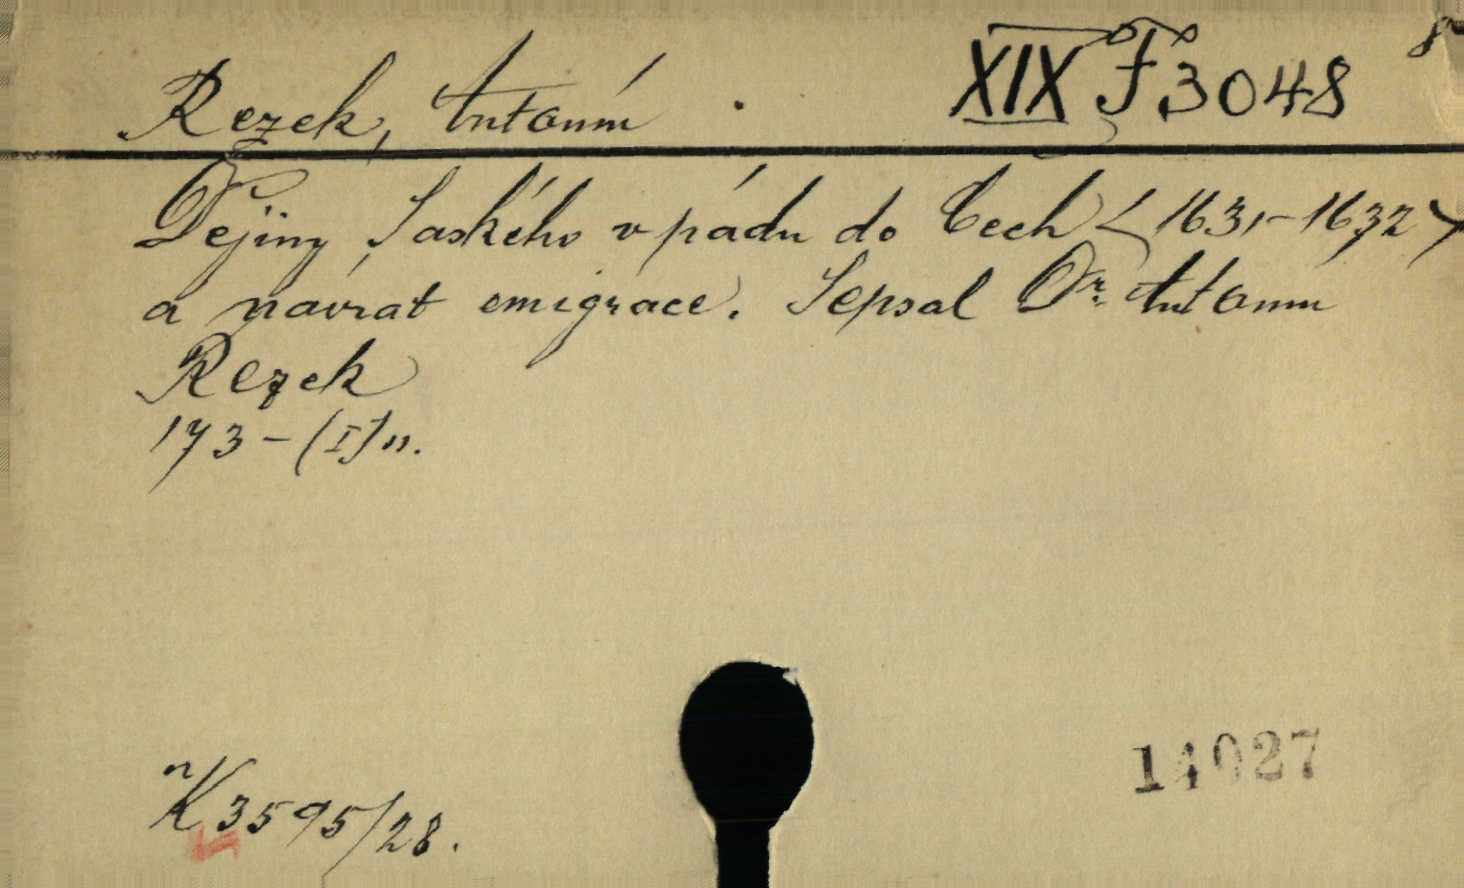 XIX F 3048 8°
Rezek, Antonín
Dějiny Saského vpádu do Čech <1631-1632>
a návrat emigrace. Sepsal Dr. Antonín
Rezek
173-(I) n.
K 3595/28.
14027